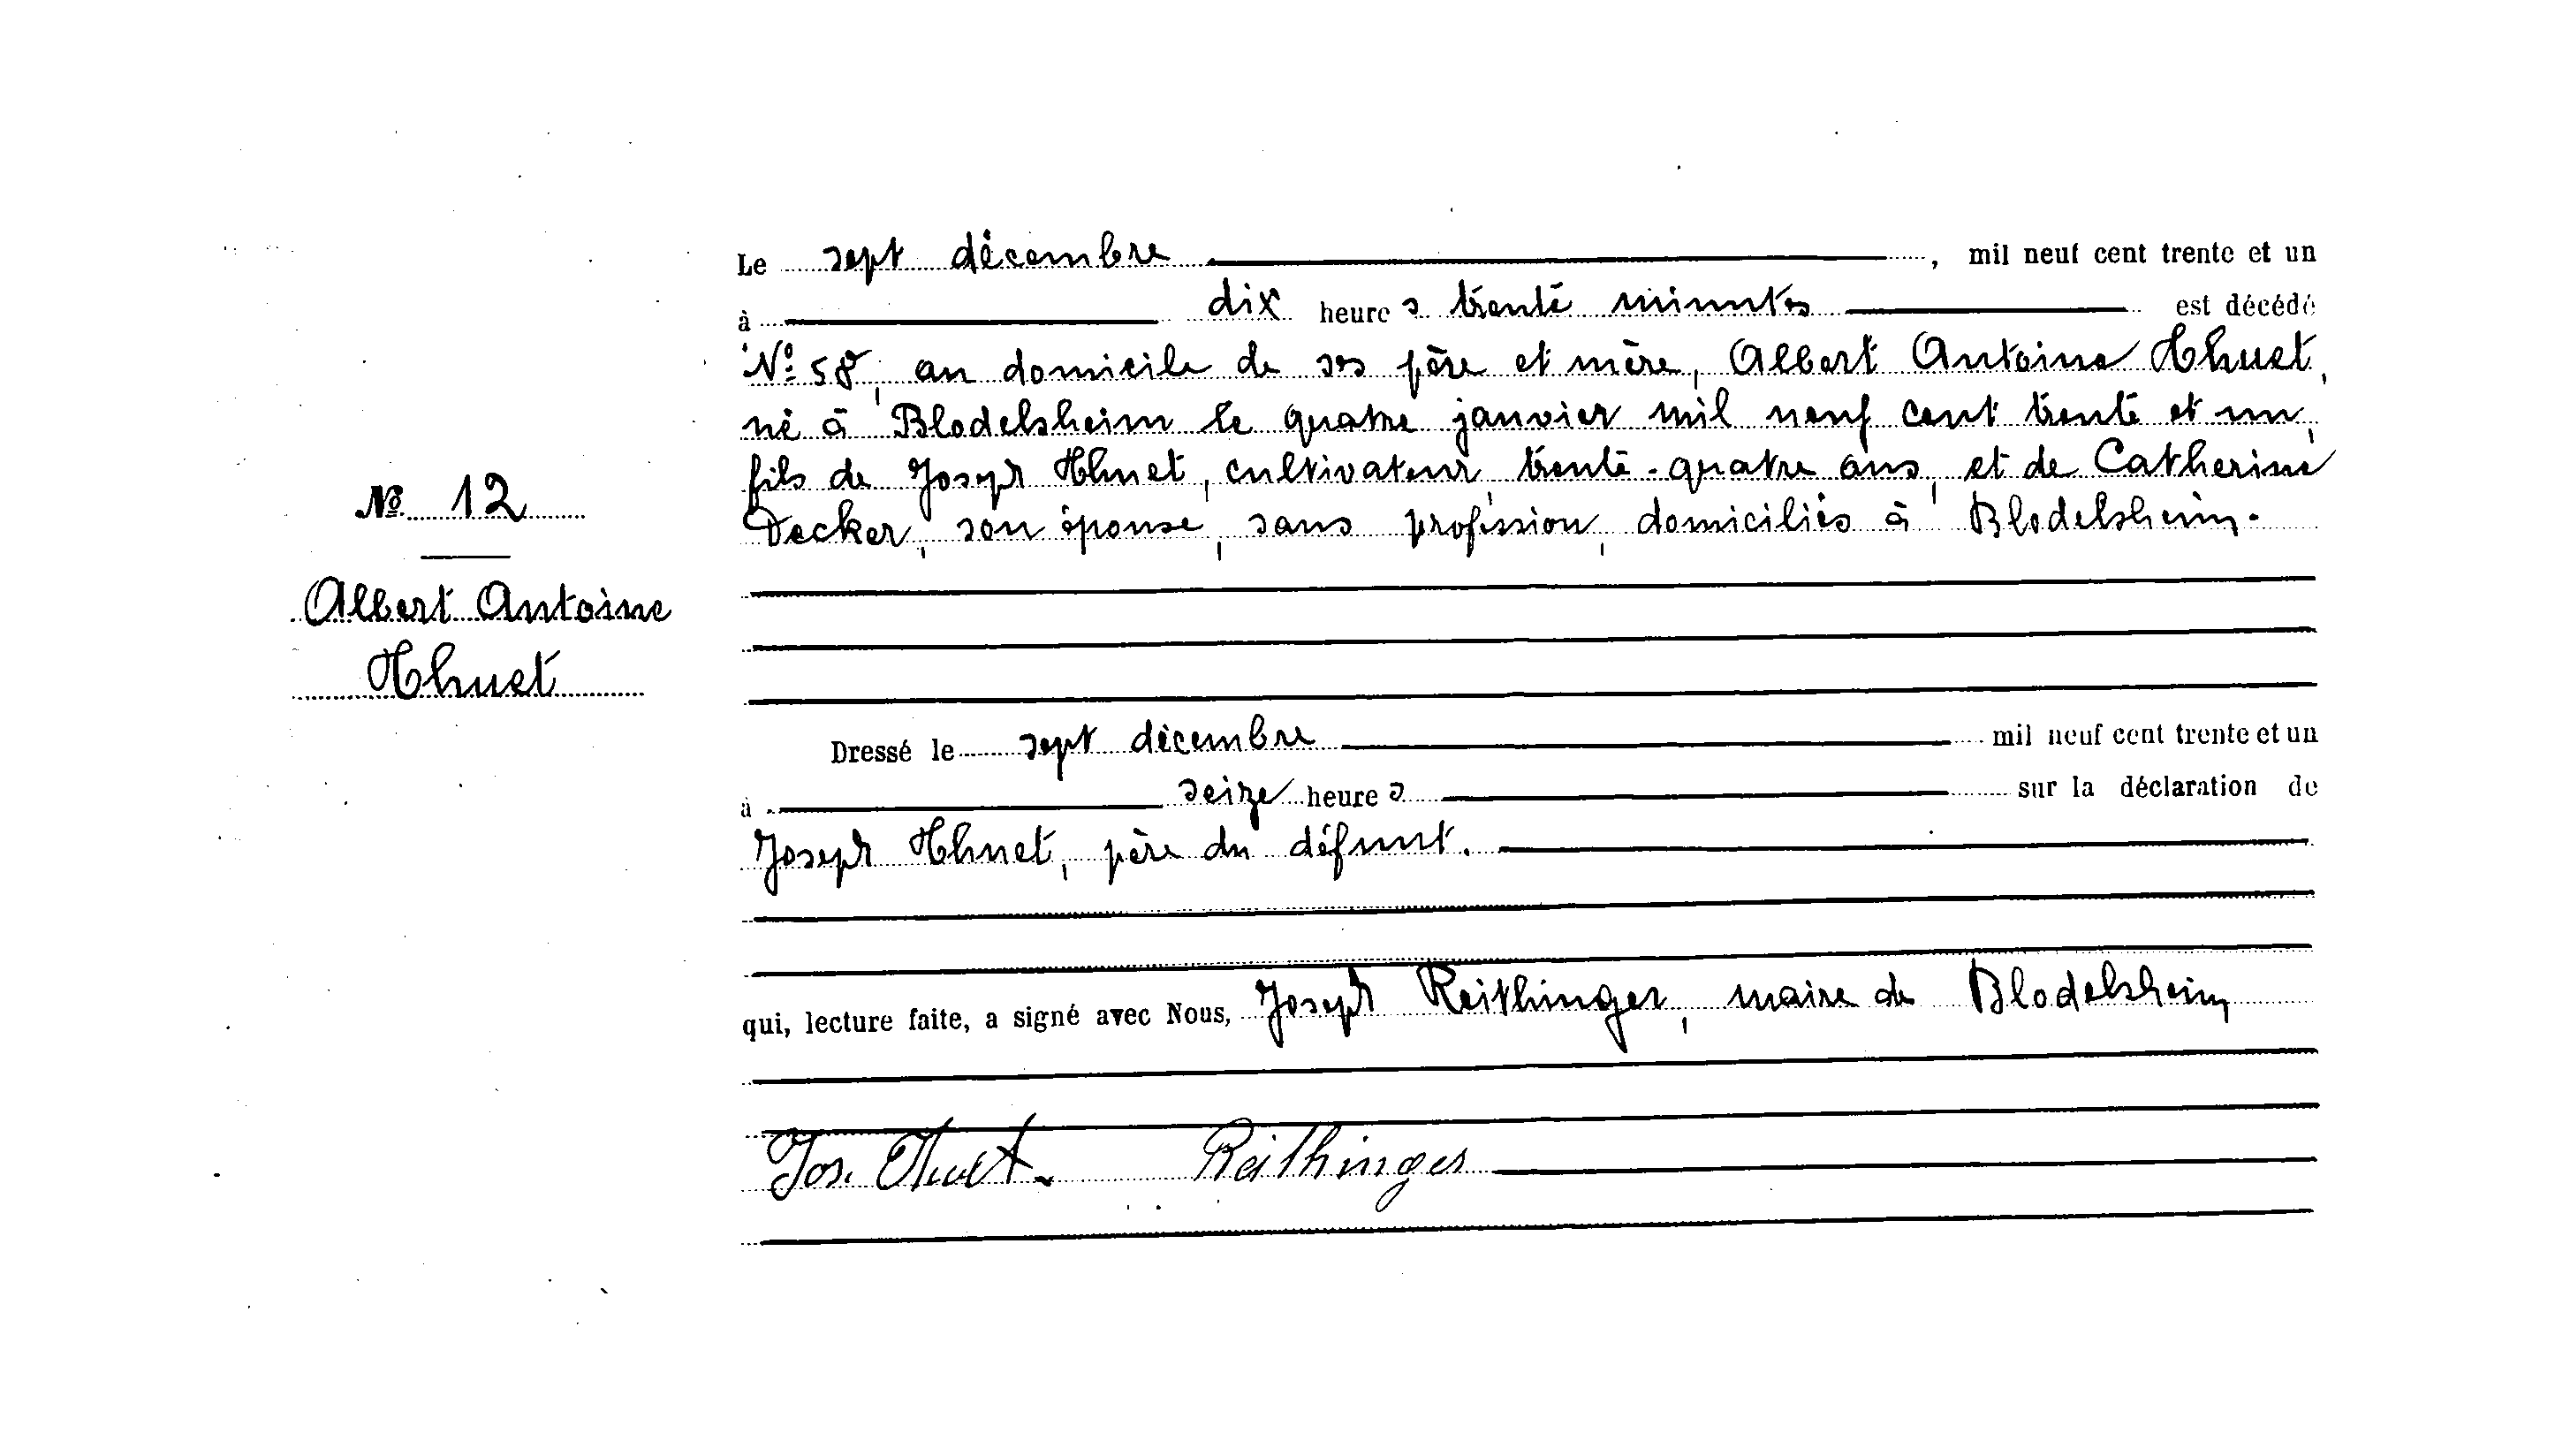 Nº 12
Albert Antoine
Thuet
Le sept décembre, mil neuf cent trente et un
à dix heures trente minutes est décédé
Nº 58, au domicile de ses père et mère, Albert Antoine Thuet,
né à Blodelsheim le quatre janvier mil neuf cent trente et un,
fils de Joseph Thuet, cultivateur, trente-quatre ans, et de Catherine
Decker, son épouse, sans profession, domiciliés à Blodelsheim.
Dressé le sept décembre mil neuf cent trente et un
à seize heures sur la déclaration de
Joseph Thuet, père du défunt.
qui, lecture faite, a signé avec Nous, Joseph Reithinger, maire de Blodelsheim
Jos. Thuet. Reithinger